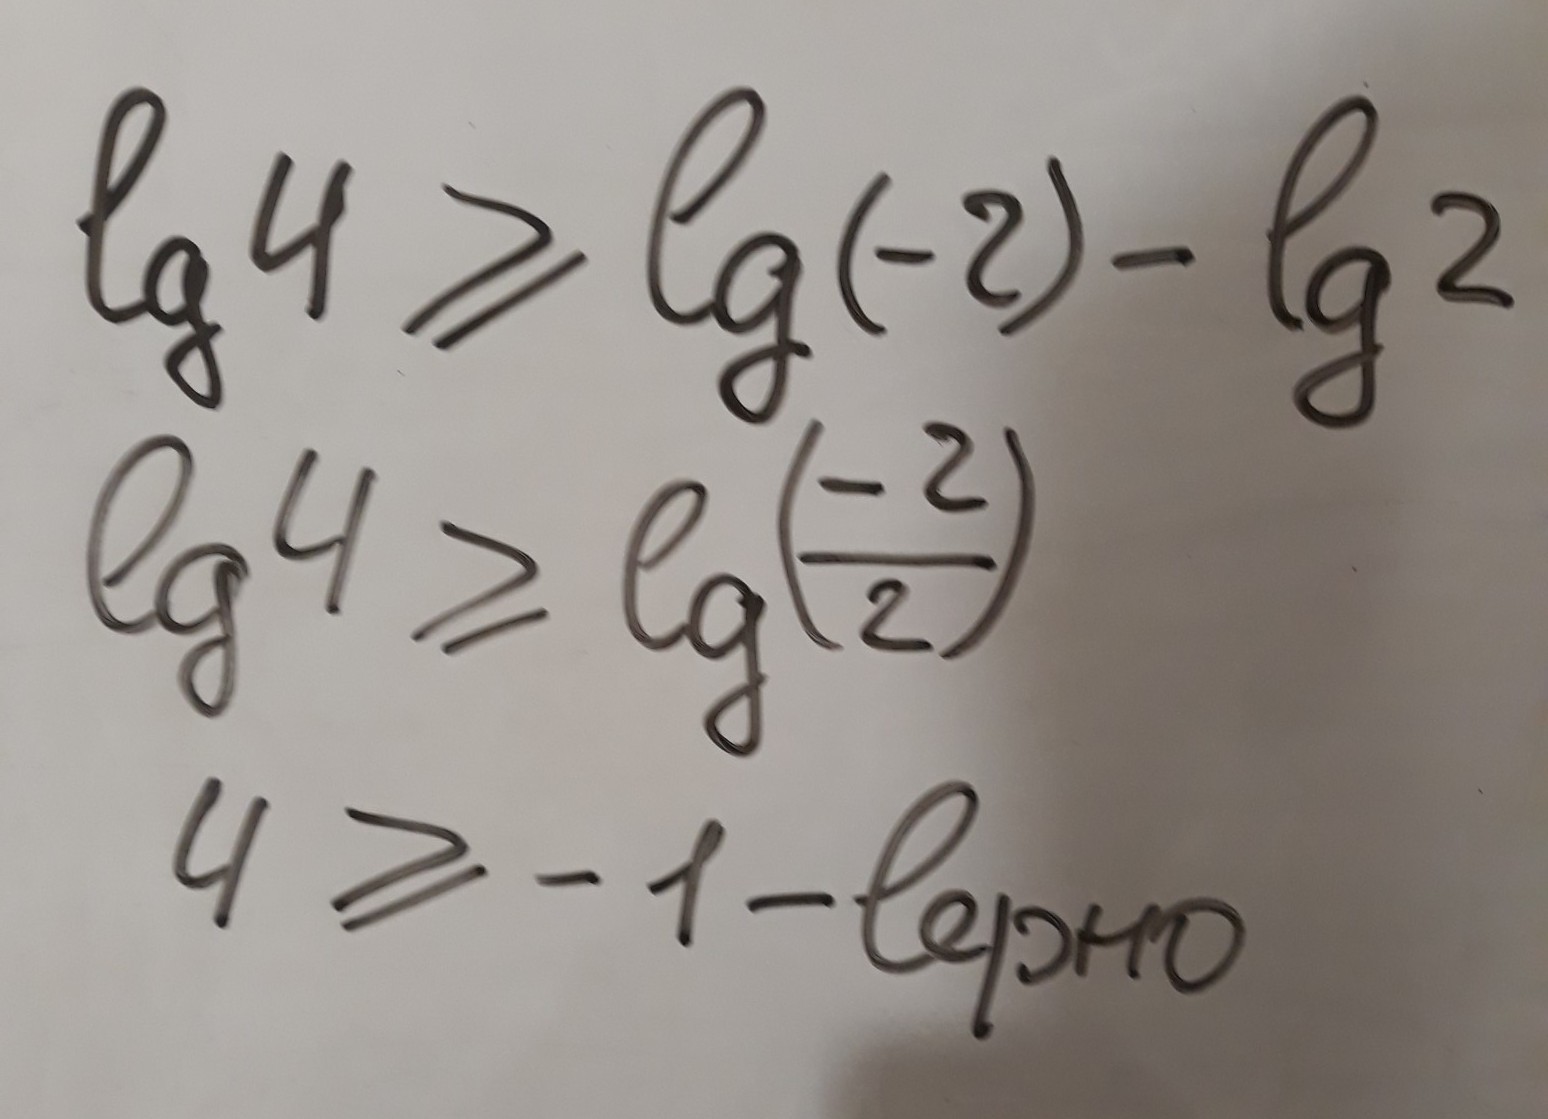 lg 4 ≥ lg(-2) - lg 2
lg 4 ≥ lg(-2/2)
4 ≥ -1 - верно